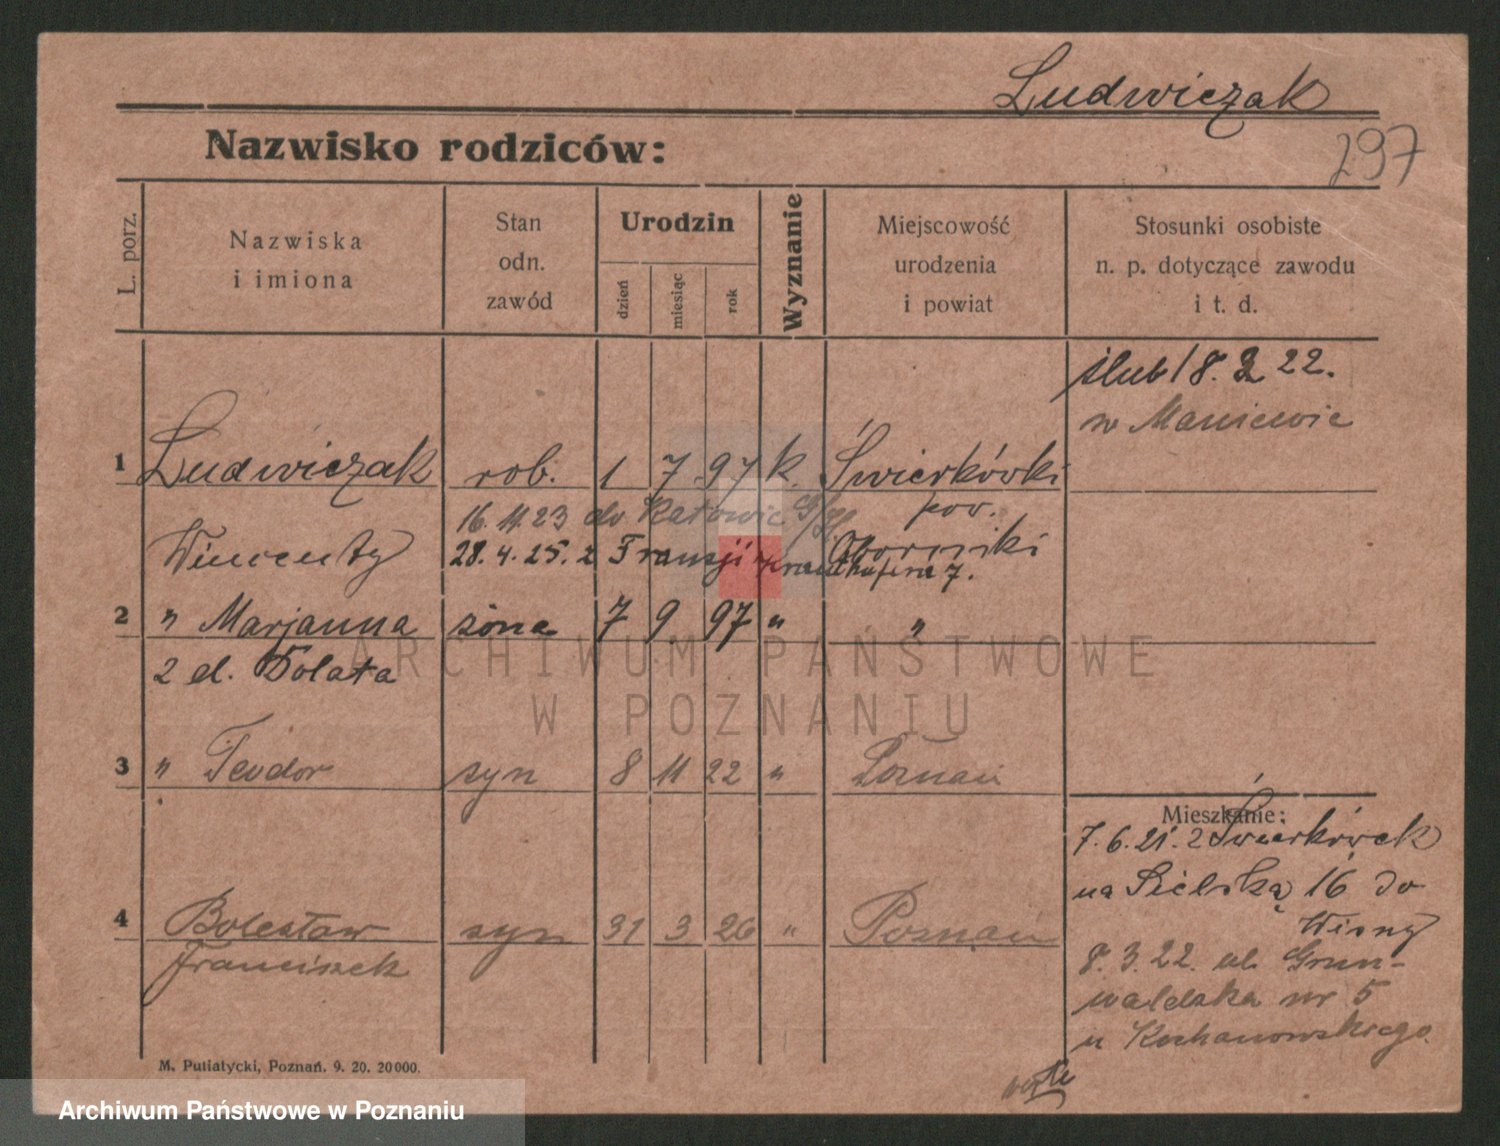 Ludwiczak
297
Nazwisko rodziców:
L. porz.
Nazwiska
i imiona
Stan
odn.
zawód
Urodzin
dzień
miesiąc
rok
Wyznanie
Miejscowość
urodzenia
i powiat
Stosunki osobiste
n. p. dotyczące zawodu
i t. d.
ślub 18. 2 22.
w Maniewie
1 Ludwiczak rob. 1 7 97 k. Świerkówki
16.11.23 do Katowic G/Śl. pow.
Wincenty Oborniki
28.4.25. z Francji 7.
2 " Marjanna żona 7 9 97 " "
z d. Dolata
3 " Teodor syn 8 11 22 " Poznań
Mieszkanie:
7.6.21. z Świerkówek
na Sielską 16 do
4 Bolesław syn 31 3 26 " Poznań
Wisny
Franciszek
8.3.22. ul. Grun-
waldzka nr 5
u Kochanowskiego.
M. Putiatycki, Poznań. 9. 20. 20000.
ARCHIWUM PAŃSTWOWE
W POZNANIU
Archiwum Państwowe w Poznaniu